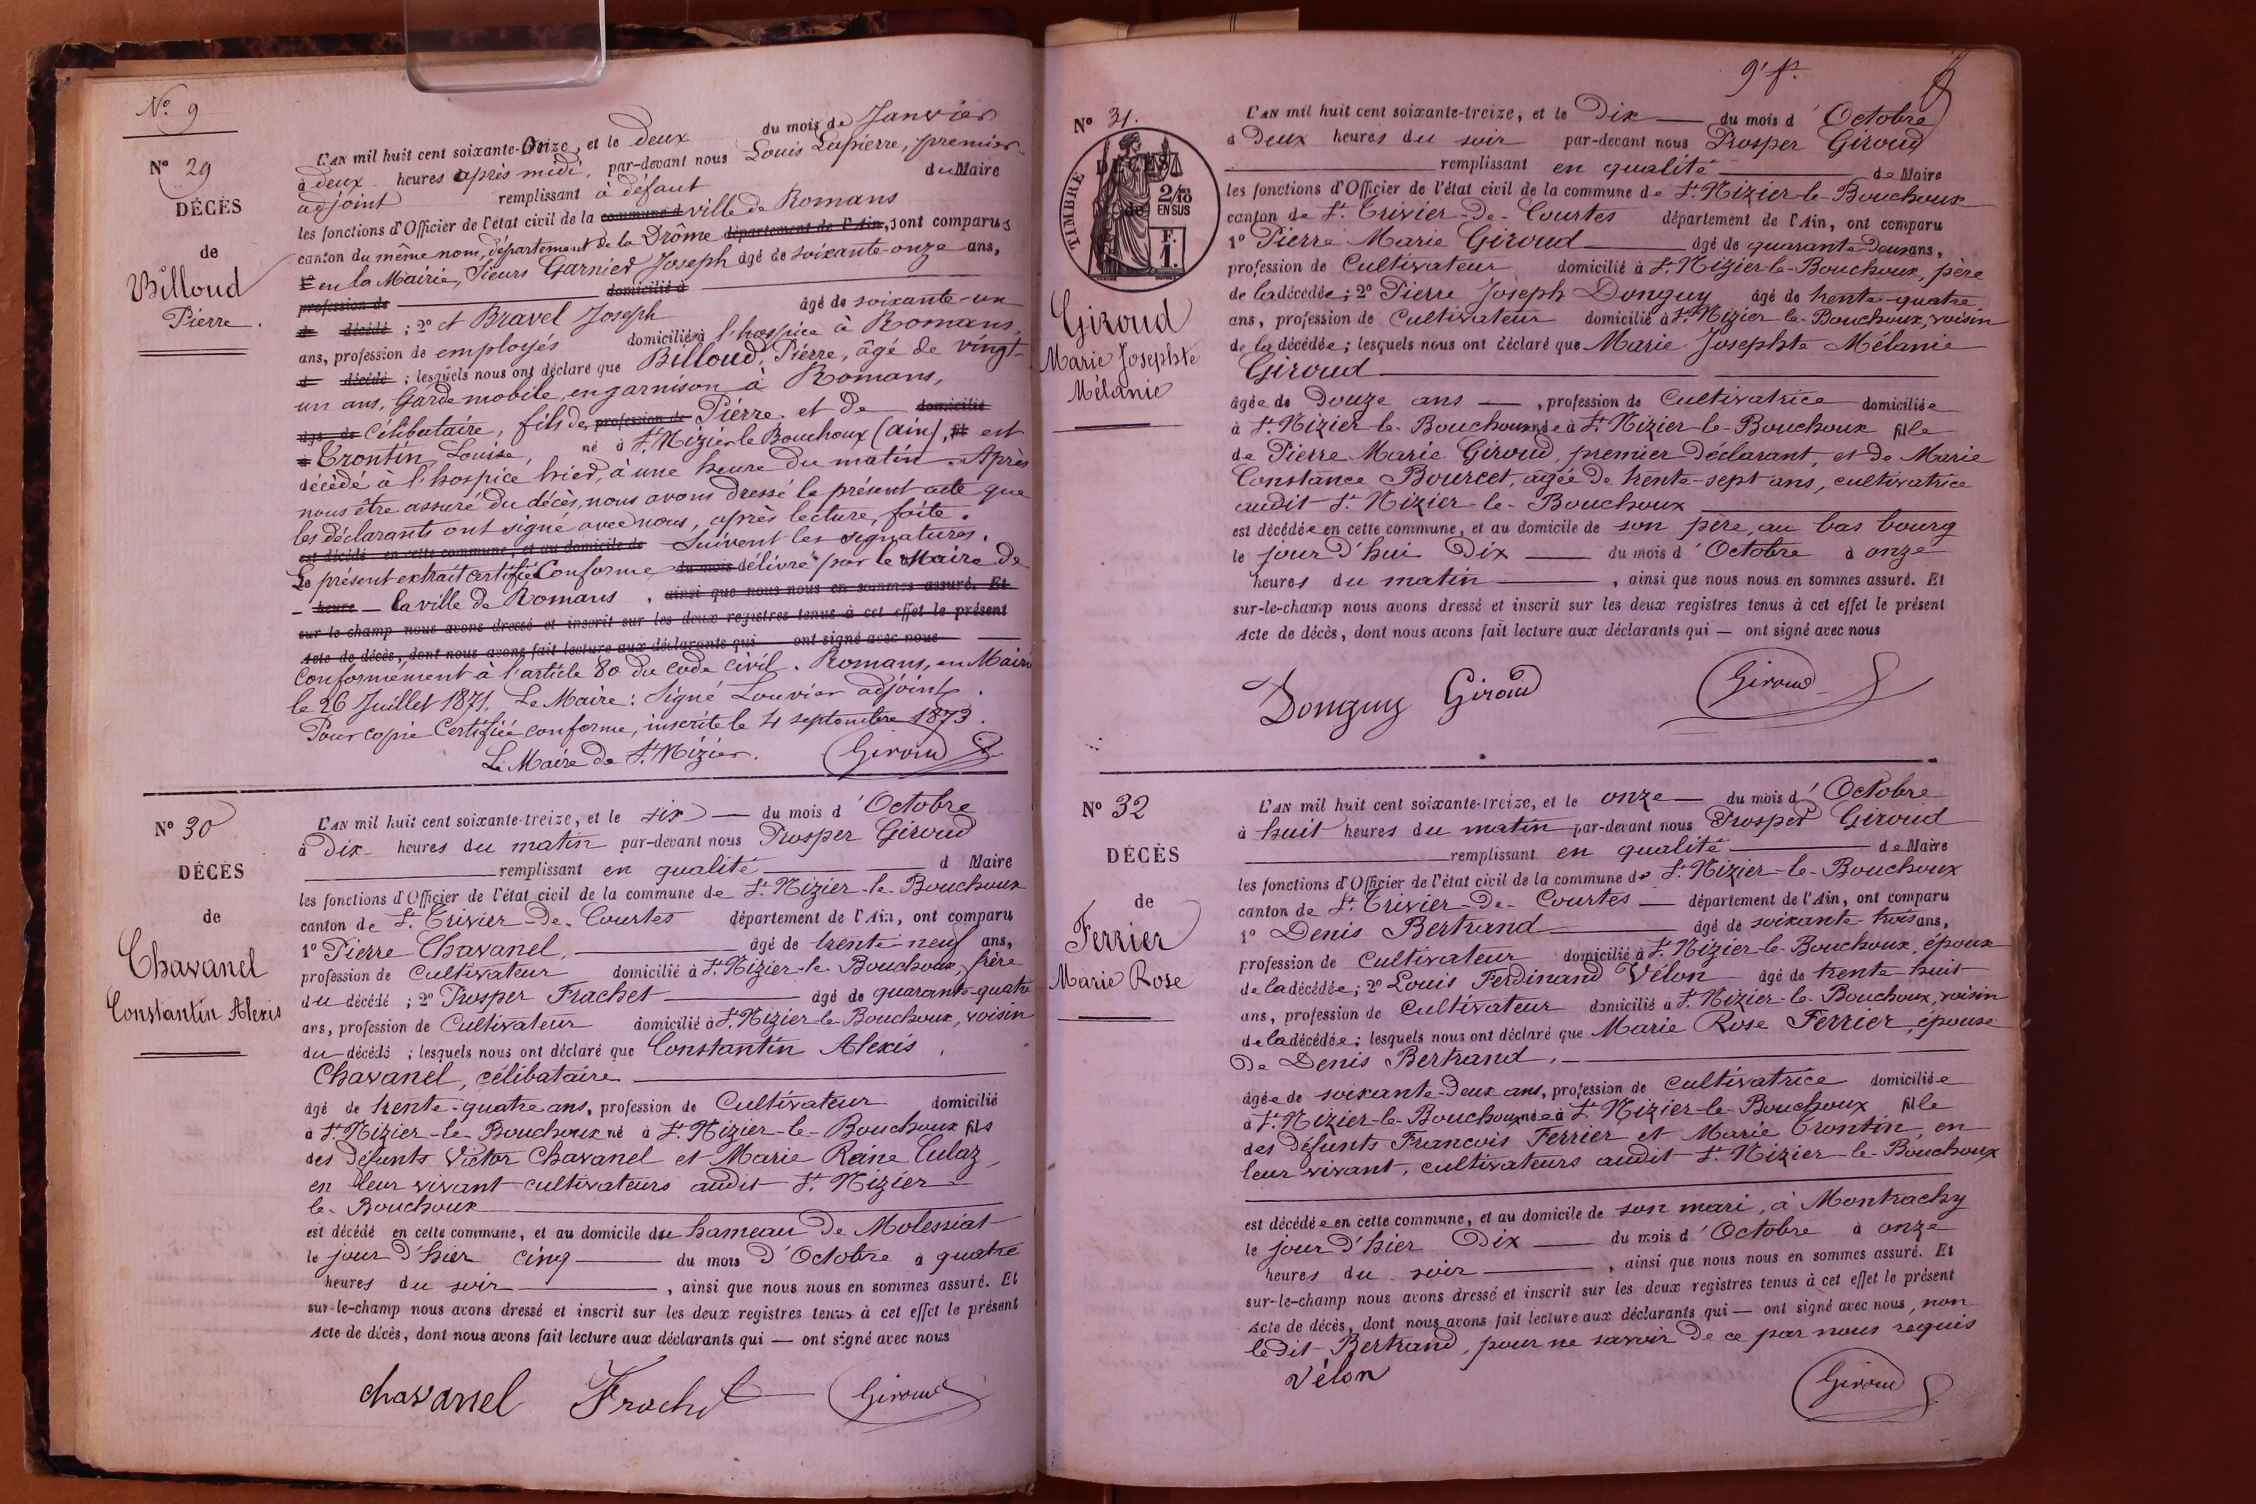 N° 9
N° 29
DÉCÈS
de
Billoud
Pierre.
L'AN mil huit cent soixante-onze, et le deux du mois de Janvier
à deux heures après midi, par-devant nous Louis Lapierre, premier
adjoint remplissant à défaut du Maire
les fonctions d'Officier de l'état civil de la commune d ville de Romans
canton du même nom, département de la Drôme département de l'Ain, sont comparus
1° en la Mairie, Sieurs Garnier Joseph âgé de soixante-onze ans,
profession de domicilié à
d décédé ; 2° et Bravel Joseph âgé de soixante-un
ans, profession de employés domiciliés à l'hospice à Romans,
d décédé ; lesquels nous ont déclaré que Billoud, Pierre, âgé de vingt-
un ans, Garde mobile, en garnison à Romans,
âgé de célibataire, fils de profession de Pierre et de domicilié
à Crontin, Louise, né à St. Nizier le Bouchoux (ain), fil est
décédé à l'hospice hier, à une heure du matin. Après
nous être assuré du décès, nous avons dressé le présent acte que
les déclarants ont signé avec nous, après lecture, faite.
est décédé en cette commune, et au domicile de Suivent les signatures.
Le présent extrait certifié Conforme du mois délivré par le Maire de
heure la ville de Romans, ainsi que nous nous en sommes assuré. Et
sur-le-champ nous avons dressé et inscrit sur les deux registres tenus à cet effet le présent
Acte de décès, dont nous avons fait lecture aux déclarants qui ont signé avec nous
Conformément à l'article 80 du code civil. Romans, en Mairie
le 26 Juillet 1871. Le Maire : Signé Louvier adjoint.
Pour copie Certifiée conforme, inscrite le 4 septembre 1873.
Le Maire de St. Nizier. Giroud
N° 30
DÉCÈS
de
Chavanel
Constantin Alexis
L'AN mil huit cent soixante-treize, et le six du mois d'Octobre
à Dix heures du matin par-devant nous Prosper Giroud
remplissant en qualité d Maire
les fonctions d'Officier de l'état civil de la commune de St. Nizier-le-Bouchoux
canton de St. Trivier-De-Courtes département de l'Ain, ont comparu
1° Pierre Chavanel, âgé de trente-neuf ans,
profession de Cultivateur domicilié à St. Nizier-le-Bouchoux, frère
du décédé ; 2° Prosper Frachet âgé de quarante-quatre
ans, profession de Cultivateur domicilié à St. Nizier-le-Bouchoux, voisin
du décédé ; lesquels nous ont déclaré que Constantin Alexis
Chavanel, célibataire
âgé de trente-quatre ans, profession de Cultivateur domicilié
à St. Nizier-le-Bouchoux né à St. Nizier-le-Bouchoux fils
des défunts Victor Chavanel et Marie Reine Culaz,
en leur vivant cultivateurs audit St. Nizier-
le-Bouchoux
est décédé en cette commune, et au domicile du hameau De Molessiat
le jour d'hier cinq du mois d'Octobre à quatre
heures du soir, ainsi que nous nous en sommes assuré. Et
sur-le-champ nous avons dressé et inscrit sur les deux registres tenus à cet effet le présent
Acte de décès, dont nous avons fait lecture aux déclarants qui — ont signé avec nous
chavanel Frachet Giroud
9e f.
N° 31.
TIMBRE
2/10
EN SUS
F.
1.
Giroud
Marie Josephte
Mélanie
L'AN mil huit cent soixante-treize, et le Dix du mois d'Octobre
à Deux heures du soir par-devant nous Prosper Giroud
remplissant en qualité de Maire
les fonctions d'Officier de l'état civil de la commune de St. Nizier-le-Bouchoux
canton de St. Trivier-De-Courtes département de l'Ain, ont comparu
1° Pierre Marie Giroud âgé de quarante Deux ans,
profession de Cultivateur domicilié à St. Nizier-le-Bouchoux, père
de la décédée ; 2° Pierre Joseph Donguy âgé de trente-quatre
ans, profession de Cultivateur domicilié à St. Nizier-le-Bouchoux, voisin
de la décédée ; lesquels nous ont déclaré que Marie Josephte Mélanie
Giroud
âgée de Douze ans, profession de Cultivatrice domiciliée
à St. Nizier-le-Bouchoux née à St. Nizier-le-Bouchoux fille
de Pierre Marie Giroud, premier Déclarant, et de Marie
Constance Bourcet, âgée De trente-sept ans, cultivatrice
audit St. Nizier-le-Bouchoux
est décédée en cette commune, et au domicile de son père, au bas bourg
le jour d'hui Dix du mois d'Octobre à onze
heures du matin, ainsi que nous nous en sommes assuré. Et
sur-le-champ nous avons dressé et inscrit sur les deux registres tenus à cet effet le présent
Acte de décès, dont nous avons fait lecture aux déclarants qui — ont signé avec nous
Donguy Giroud Giroud
N° 32
DÉCÈS
de
Ferrier
Marie Rose
L'AN mil huit cent soixante-treize, et le onze du mois d'Octobre
à huit heures du matin par-devant nous Prosper Giroud
remplissant en qualité de Maire
les fonctions d'Officier de l'état civil de la commune de St. Nizier-le-Bouchoux
canton de St. Trivier-De-Courtes département de l'Ain, ont comparu
1° Denis Bertrand âgé de soixante trois ans,
profession de Cultivateur domicilié à St. Nizier-le-Bouchoux, époux
de la décédée ; 2° Louis Ferdinand Vélon âgé de trente-huit
ans, profession de Cultivateur domicilié à St. Nizier-le-Bouchoux, voisin
de la décédée ; lesquels nous ont déclaré que Marie Rose Ferrier, épouse
De Denis Bertrand,
âgée de soixante-Deux ans, profession de Cultivatrice domiciliée
à St. Nizier-le-Bouchoux née à St. Nizier-le-Bouchoux fille
des Défunts François Ferrier et Marie Crontin, en
leur vivant, cultivateurs audit St. Nizier-le-Bouchoux
est décédée en cette commune, et au domicile de son mari, à Montrachy
le jour d'hier Dix du mois d'Octobre à onze
heures du soir, ainsi que nous nous en sommes assuré. Et
sur-le-champ nous avons dressé et inscrit sur les deux registres tenus à cet effet le présent
Acte de décès, dont nous avons fait lecture aux déclarants qui — ont signé avec nous, non
ledit Bertrand, pour ne savoir De ce par nous requis
Vélon Giroud